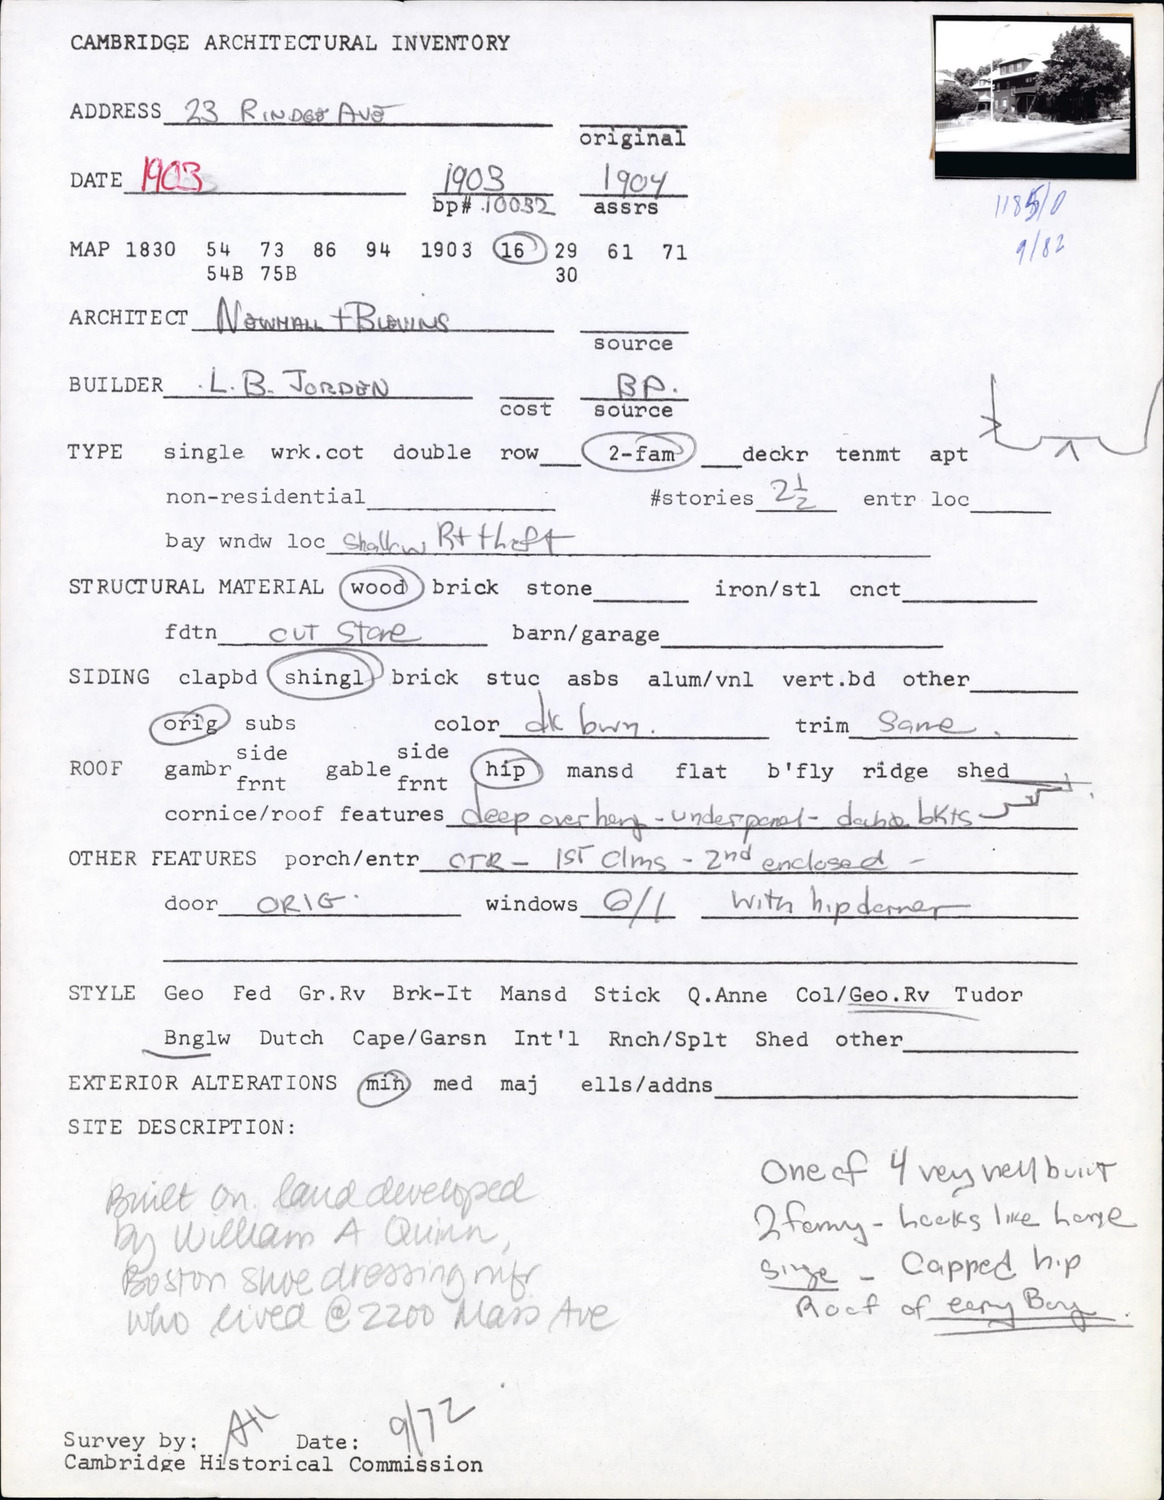 CAMBRIDGE ARCHITECTURAL INVENTORY
ADDRESS 23 RINDGE AVE
original
DATE 1903 1903 1904
bp# 10032 assrs
1185/0
9/82
MAP 1830 54 73 86 94 1903 16 29 61 71
54B 75B 30
ARCHITECT NEWHALL + BLEVINS
source
BUILDER L. B. JORDEN BP.
cost source
TYPE single wrk.cot double row 2-fam deckr tenmt apt
non-residential #stories 2½ entr loc
bay wndw loc Shallow Rt + left
STRUCTURAL MATERIAL wood brick stone iron/stl cnct
fdtn CUT Stone barn/garage
SIDING clapbd shingl brick stuc asbs alum/vnl vert.bd other
orig subs color dk brwn. trim Same.
side side
ROOF gambr gable hip mansd flat b'fly ridge shed
frnt frnt
cornice/roof features deep overhang - underpanel - double bkts
OTHER FEATURES porch/entr CTR - 1ST Clms - 2nd enclosed -
door ORIG. windows 6/1 With hip dormer
STYLE Geo Fed Gr.Rv Brk-It Mansd Stick Q.Anne Col/Geo.Rv Tudor
Bnglw Dutch Cape/Garsn Int'l Rnch/Splt Shed other
EXTERIOR ALTERATIONS min med maj ells/addns
SITE DESCRIPTION:
Built on land developed
by William A Quinn,
Boston shoe dressing mfr
who lived @ 2200 Mass Ave
One of 4 very well built
2 famy - looks like large
single - Capped hip
Roof of
Survey by: Date: 9/72
Cambridge Historical Commission